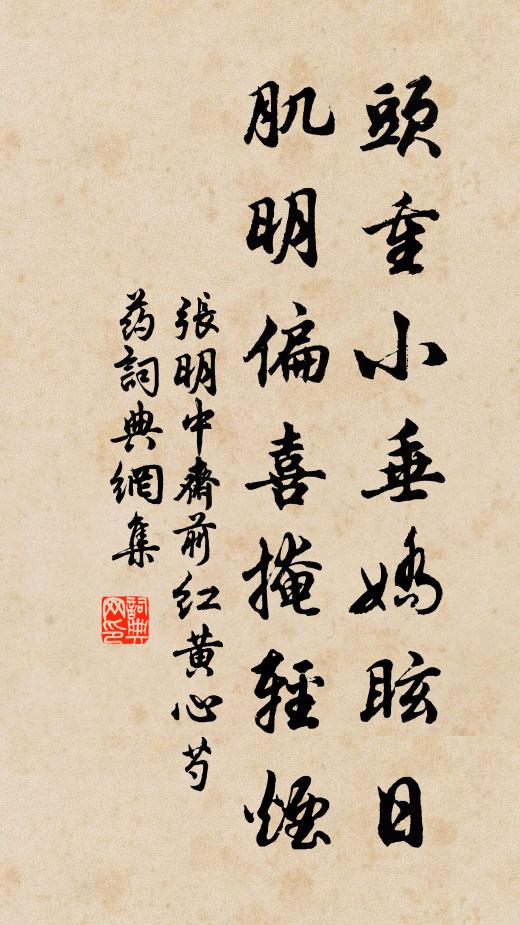 頭重小垂嬌眩日
肌明偏喜掩輕煙
張明中齋前红黄心芍
药詞典網集
詞典网印